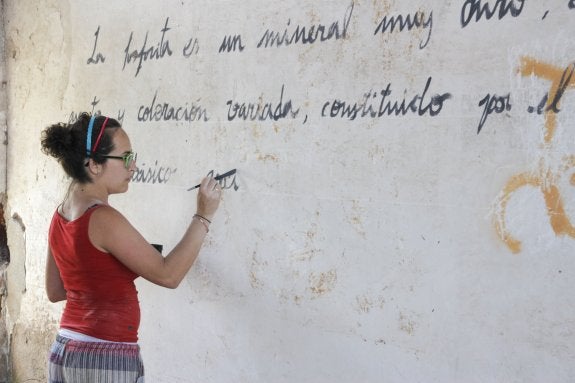 La fosfata es un mineral muy duro,
y coloración variada, constituido por el
básico